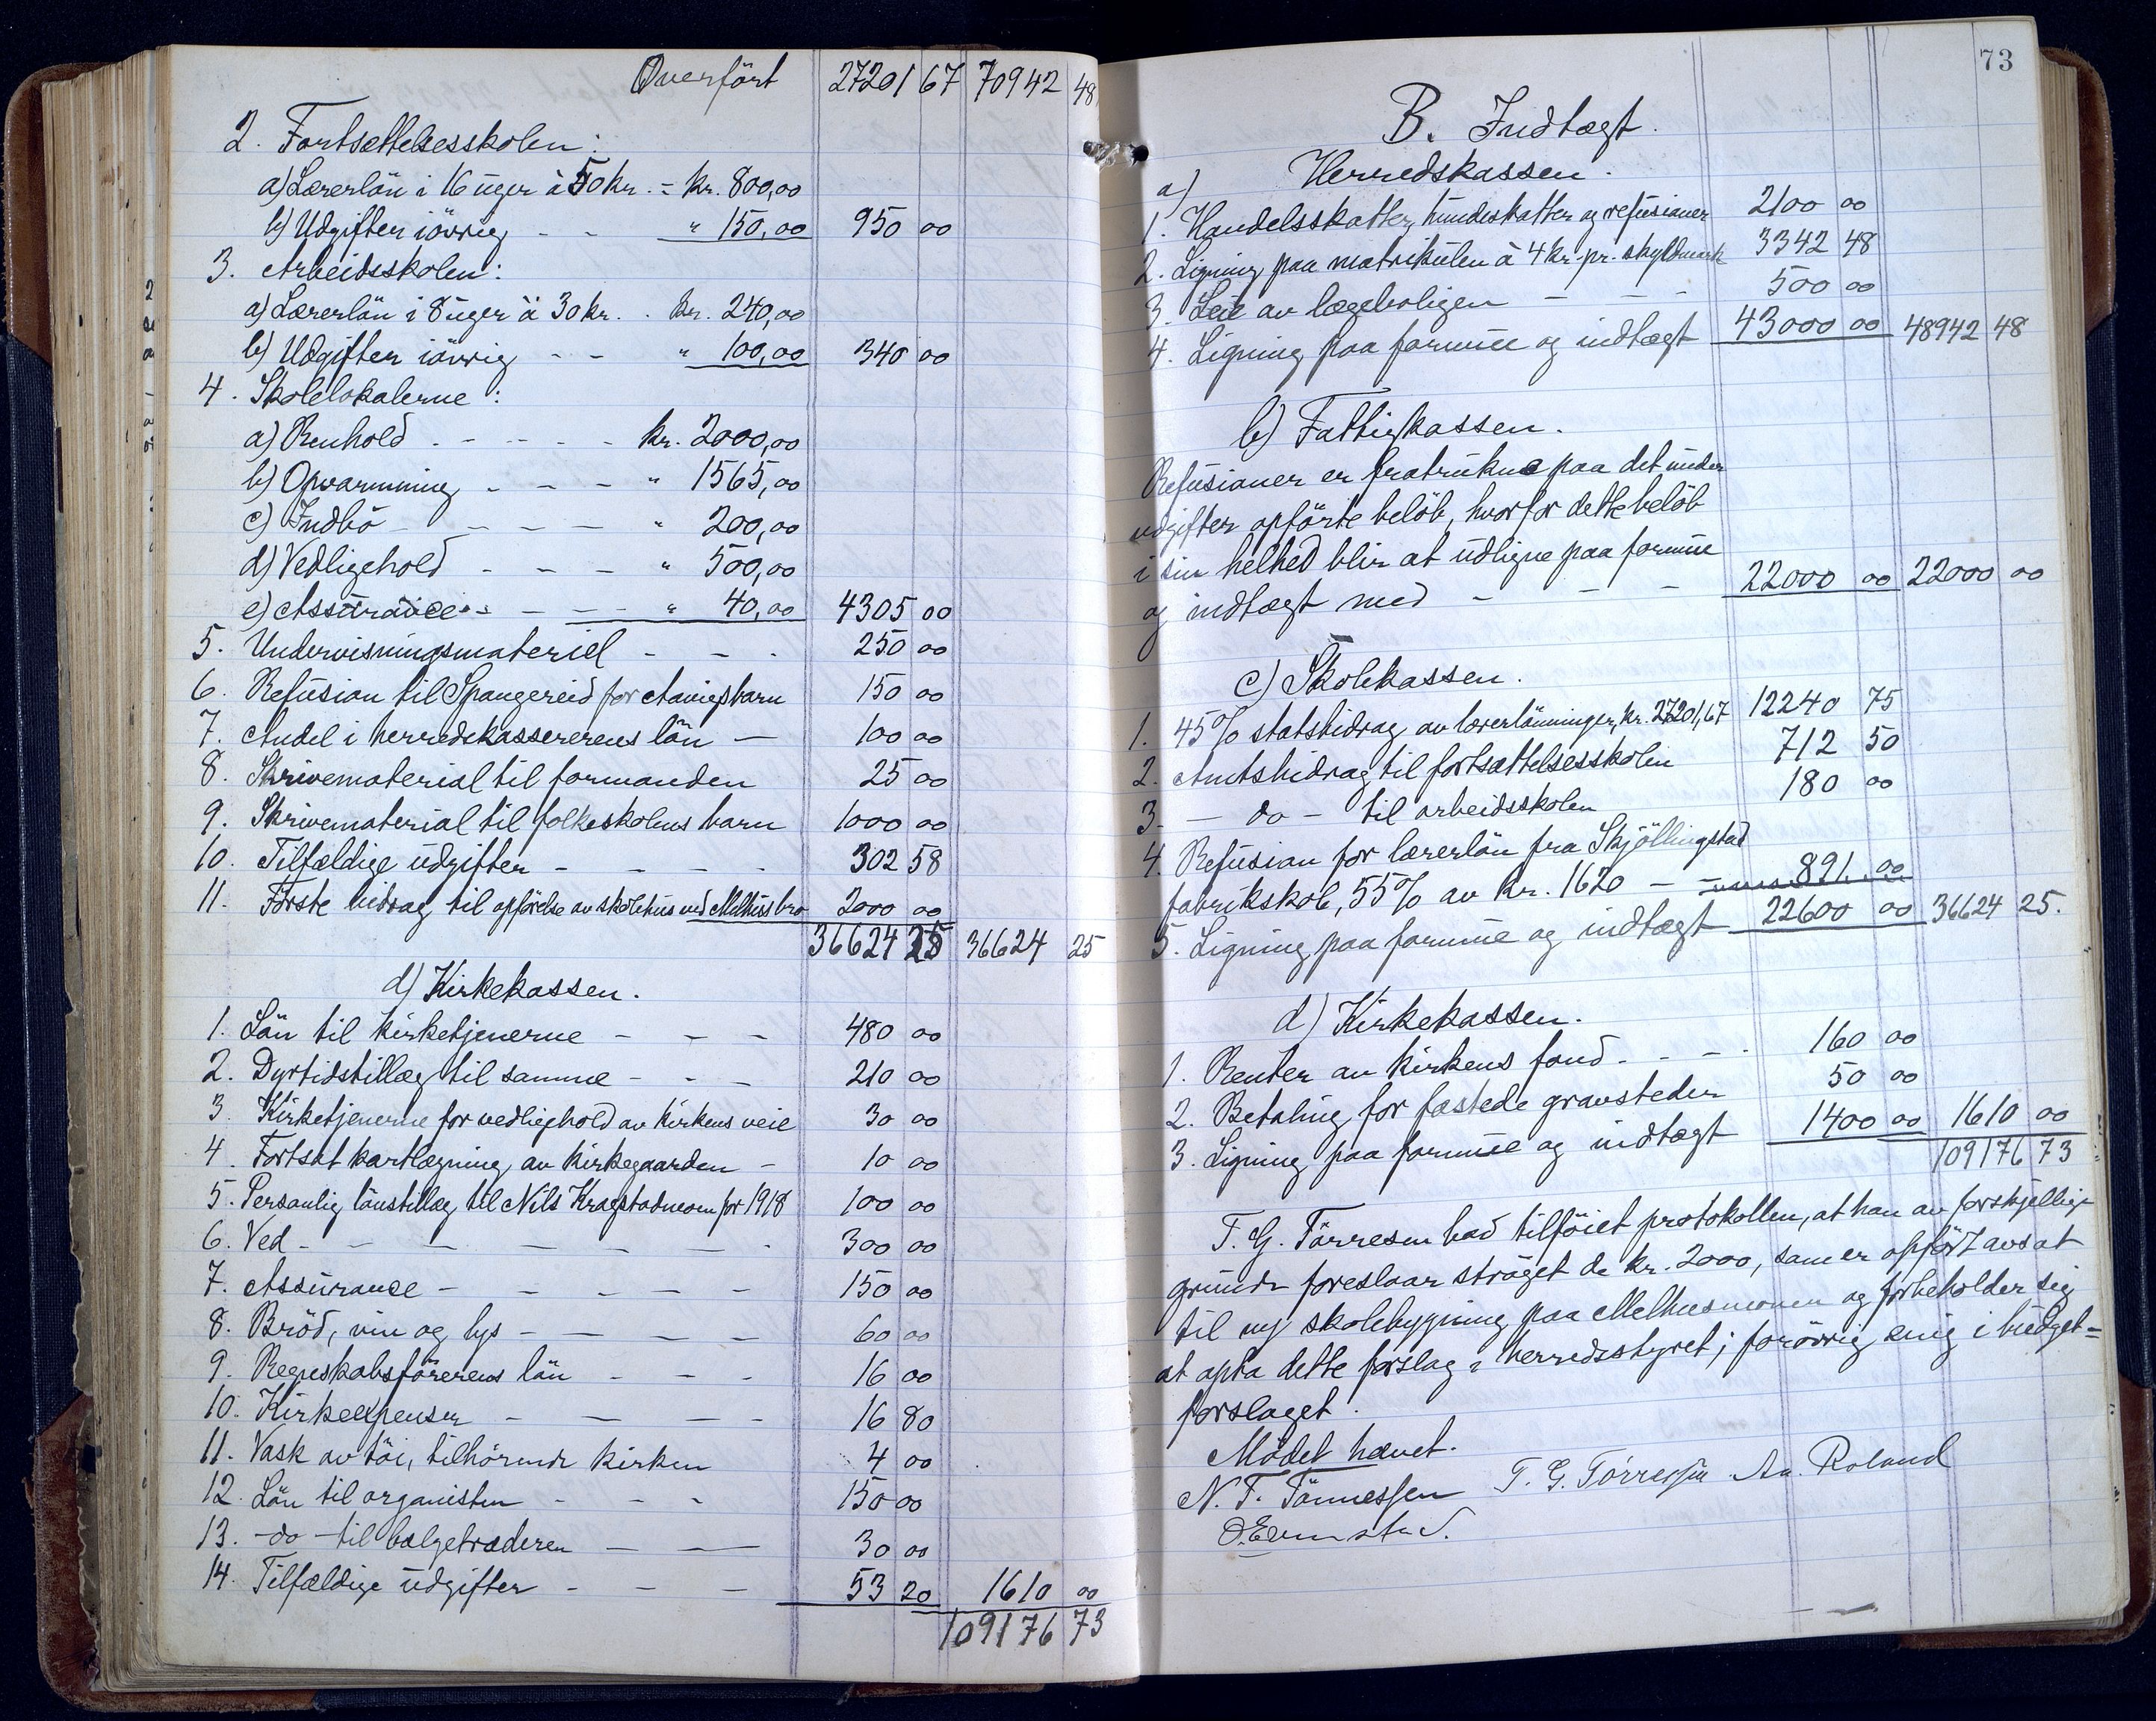 Overført 27201 67 70942 48
2. Fortsættelsesskolen:
a) Lærerløn i 16 uger à 50 kr. = kr. 800,00
b) Udgifter iøvrig - - " 150,00 950 00
3. Arbeidsskolen:
a) Lærerløn i 8 uger à 30 kr. . kr. 240,00
b) Udgifter iøvrig - - " 100,00 340 00
4. Skolelokalerne:
a) Renhold - - - - - kr. 2000,00
b) Opvarmning - - - " 1565,00
c) Indbo - - - - " 200,00
d) Vedligehold - - - " 500,00
e) Assurance - - - " 40,00 4305 00
5. Undervisningsmateriel - - - 250 00
6. Refusion til Spangereid for Aavigs barn 150 00
7. Andel i herredskassererens løn - 100 00
8. Skrivematerial til formanden 25 00
9. Skrivematerial til folkeskolens barn 1000 00
10. Tilfældige udgifter - - - - 302 58
11. Første bidrag til opførelse av skolehus ved bro 2000 00
36624 25 36624 25
d) Kirkekassen.
1. Løn til kirketjenerne - - - 480 00
2. Dyrtidstillæg til samme - - - 210 00
3. Kirketjenerne for vedligehold av kirkens veie 30 00
4. Fortsat kartlægning av kirkegaarden - 10 00
5. Personlig lønstillæg til Nils Kragstadmoen for 1918 100 00
6. Ved - - - - - - - 300 00
7. Assurance - - - - - 150 00
8. Brød, vin og lys - - - - 60 00
9. Regnskabsførerens løn - - - 16 00
10. Kirkeexpenser - - - - 16 80
11. Vask av tøi, tilhørende kirken 4 00
12. Løn til organisten - - - 150 00
13. -do- til bælgetræderen - - 30 00
14. Tilfældige udgifter - - - 53 20 1610 00
109176 73
73
B. Indtægt.
a) Herredskassen.
1. Handelsskatter, hundeskatter og refusioner 2100 00
2. Ligning paa matrikulen à 4 kr. pr. skyldmark 3342 48
3. Leie av lægeboligen - - - 500 00
4. Ligning paa formue og indtægt 43000 00 48942 48
b) Fattigkassen.
Refusioner er fratrukne paa det under
udgifter opførte beløb, hvorfor dette beløb
i sin helhed blir at udligne paa formue
og indtægt med - - - 22000 00 22000 00
c) Skolekassen.
1. 45% statsbidrag av lærerlønninger, kr. 27201,67 12240 75
2. Amtsbidrag til fortsættelsesskolen 712 50
3. - do - til arbeidsskolen 180 00
4. Refusion for lærerløn fra Skjøllingstad
fabrikskole, 55% av kr. 1620 - 891 00
5. Ligning paa formue og indtægt 22600 00 36624 25.
d) Kirkekassen.
1. Renter av kirkens fond - - - 160 00
2. Betaling for fæstede gravsteder 50 00
3. Ligning paa formue og indtægt 1400 00 1610 00
109176 73
T. G. Tørresen bad tilføiet protokollen, at han av forskjellige
grunde foreslaar strøget de kr. 2000, som er opført avsat
til ny skolebygning paa Melhusmoen og forbeholder sig
at opta dette forslag i herredsstyret; forøvrig enig i budget=
forslaget.
Mødet hævet.
N. T. Tønnessen T. G. Tørressen An. Roland